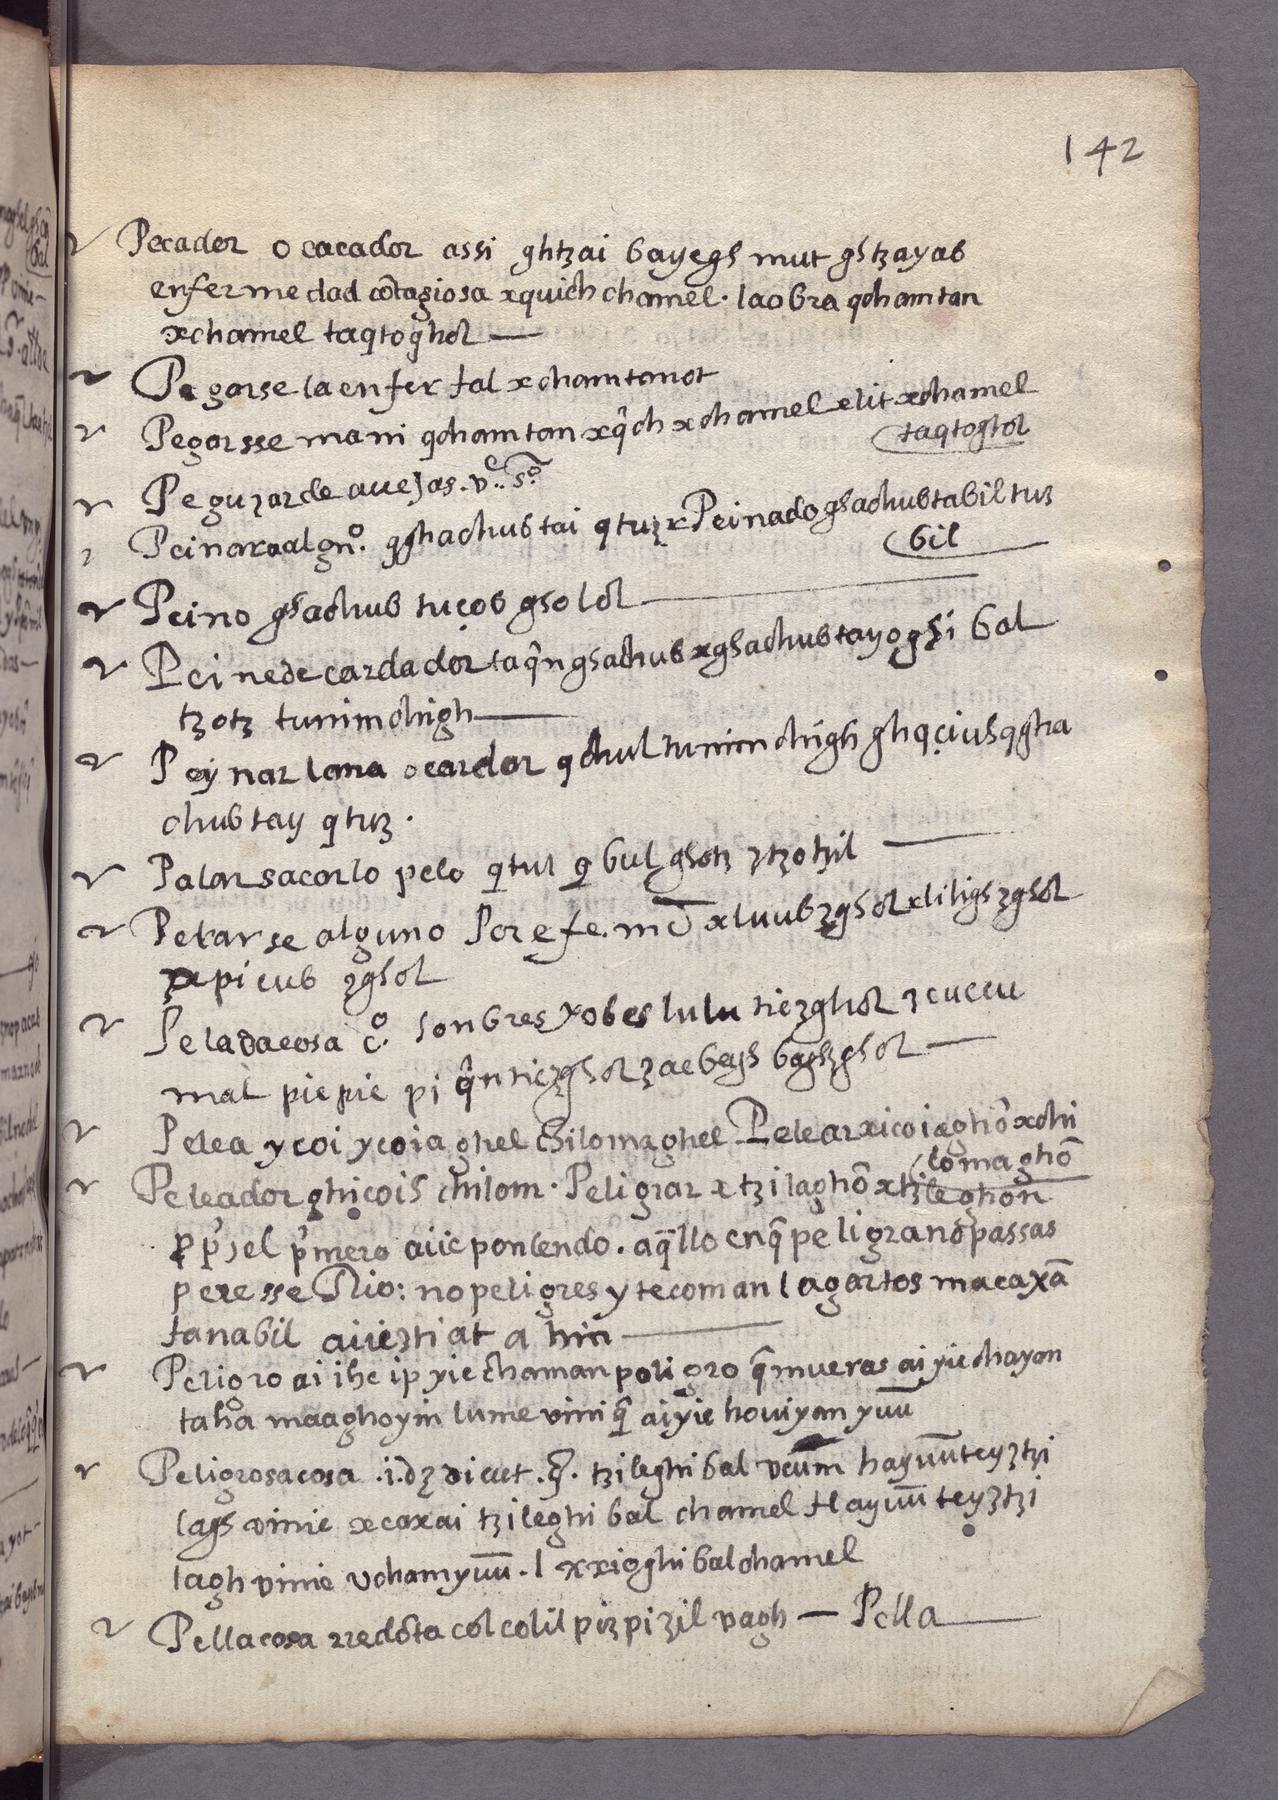 142
Pecador o cacador assi ghtzai bayegh mut ghtzayab
enfermedad cõtagiosa xquich chamel. la obra qchamtan
xchamel taqtoghol —
Pegarse la enfer tal xchamtanot
Pegarsse mani qchamtan xq̃ch xchamel elit xchamel
taqtoghol
Peguzar de auejas. vᵉ. sº
Peinara algnº. qghachubtai qtuz x Peinado ghachubtabil tuz
bil
Peino ghachub tuçob gholol
Peine de cardador taq̃n ghachub xghachubtayoghi bal
tzotz tunimchigh —
Peynar lana o cardar qchul tunimchigh ghqçiuh qgha
chubtay qtuz.
Palar sacarlo pelo qtul q bul ghotz ztzotzil —
Pelarse alguno Por efe. mõ xluub zghol xliligh zghol
xpicub zghol
Pelada cosa cº. honbres xobes lulu tiezghol zcuccu
mal piepie pi q̃n tiezghol zaebegh baghzghol —
Pelea ycoi ycoiaghel chilomaghel Pelear xicoiaghõ xchi
lomaghõ
Peleador ghicoih chilom. Peligrar xtzilaghõ xtzileghon
pp̃) el p̃mero aiie poniendo. aq̃llo enq̃ peligran õ passas
per esse Rio: no peligres y tecoman lagartos macaxã
tanabil aiieztiat a hin —
Peligro ai ihe ip yie chaman poligro q̃ mueras ai yie chayan
taha maaghoyin lume vini q̃ aiyie houiyan yuũ
Peligrosa cosa .i. dz dicut .q̃. tzileghi bal vcum̃ hayuũ teyztzi
lagh vinie xcaxai tzileghi bal chamel Hayuũ teyztzi
lagh vinie vchamyuũ. l xxioghi bal chamel
Pella cosa rredõta col colil piz pizil vagh — Pella —